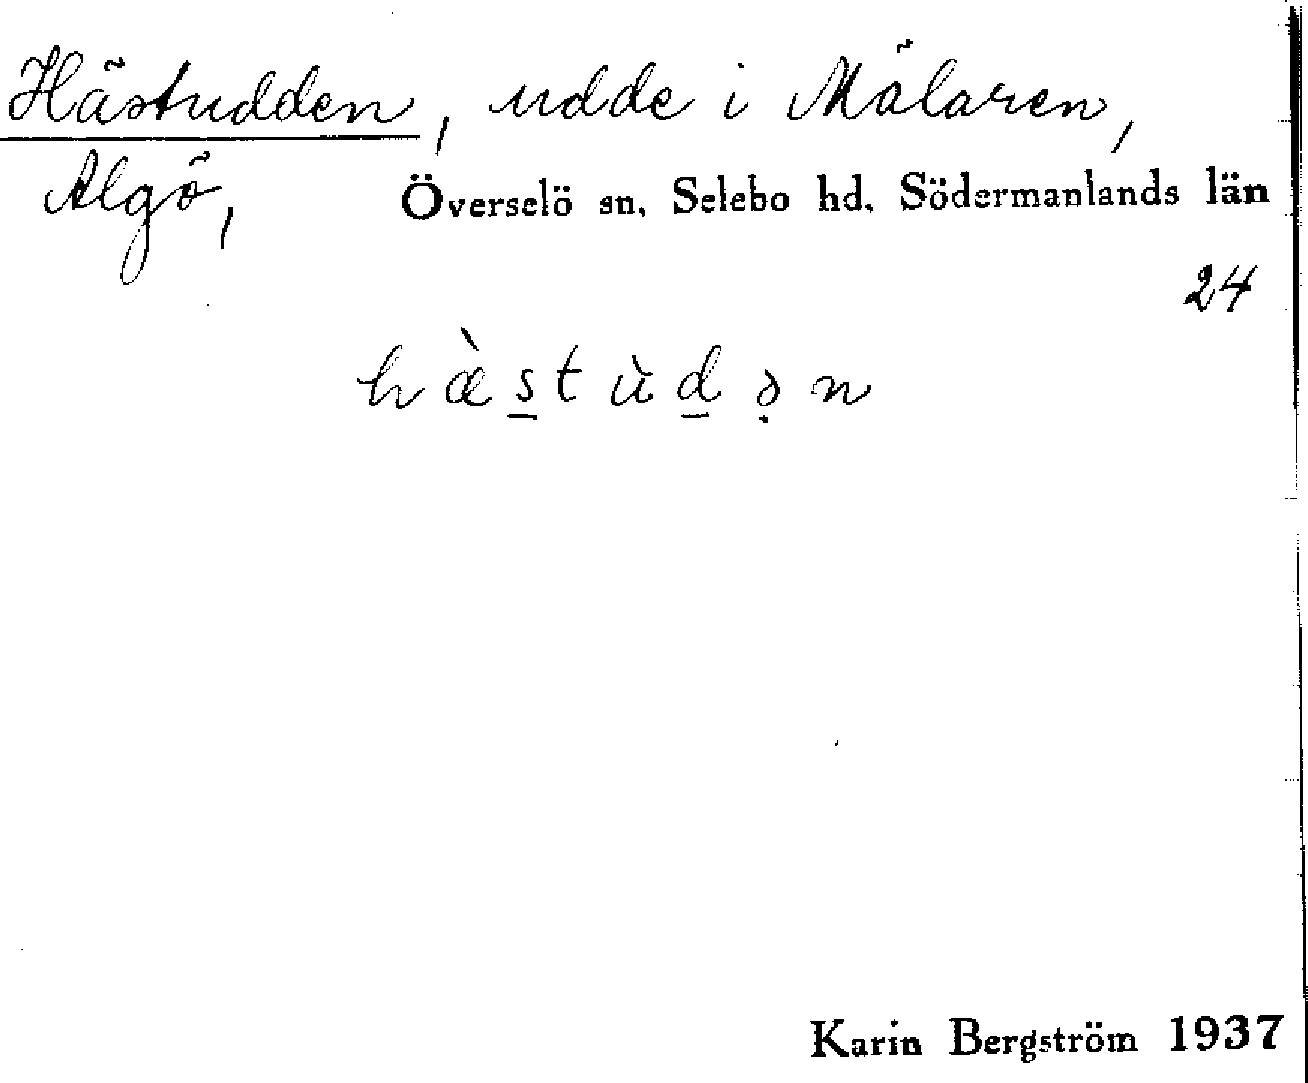 Hästudden, udde i Mälaren,
Algö, Överselö sn, Selebo hd, Södermanlands län
24
hæ̀s̠tùd̠ə̣n
Karin Bergström 1937